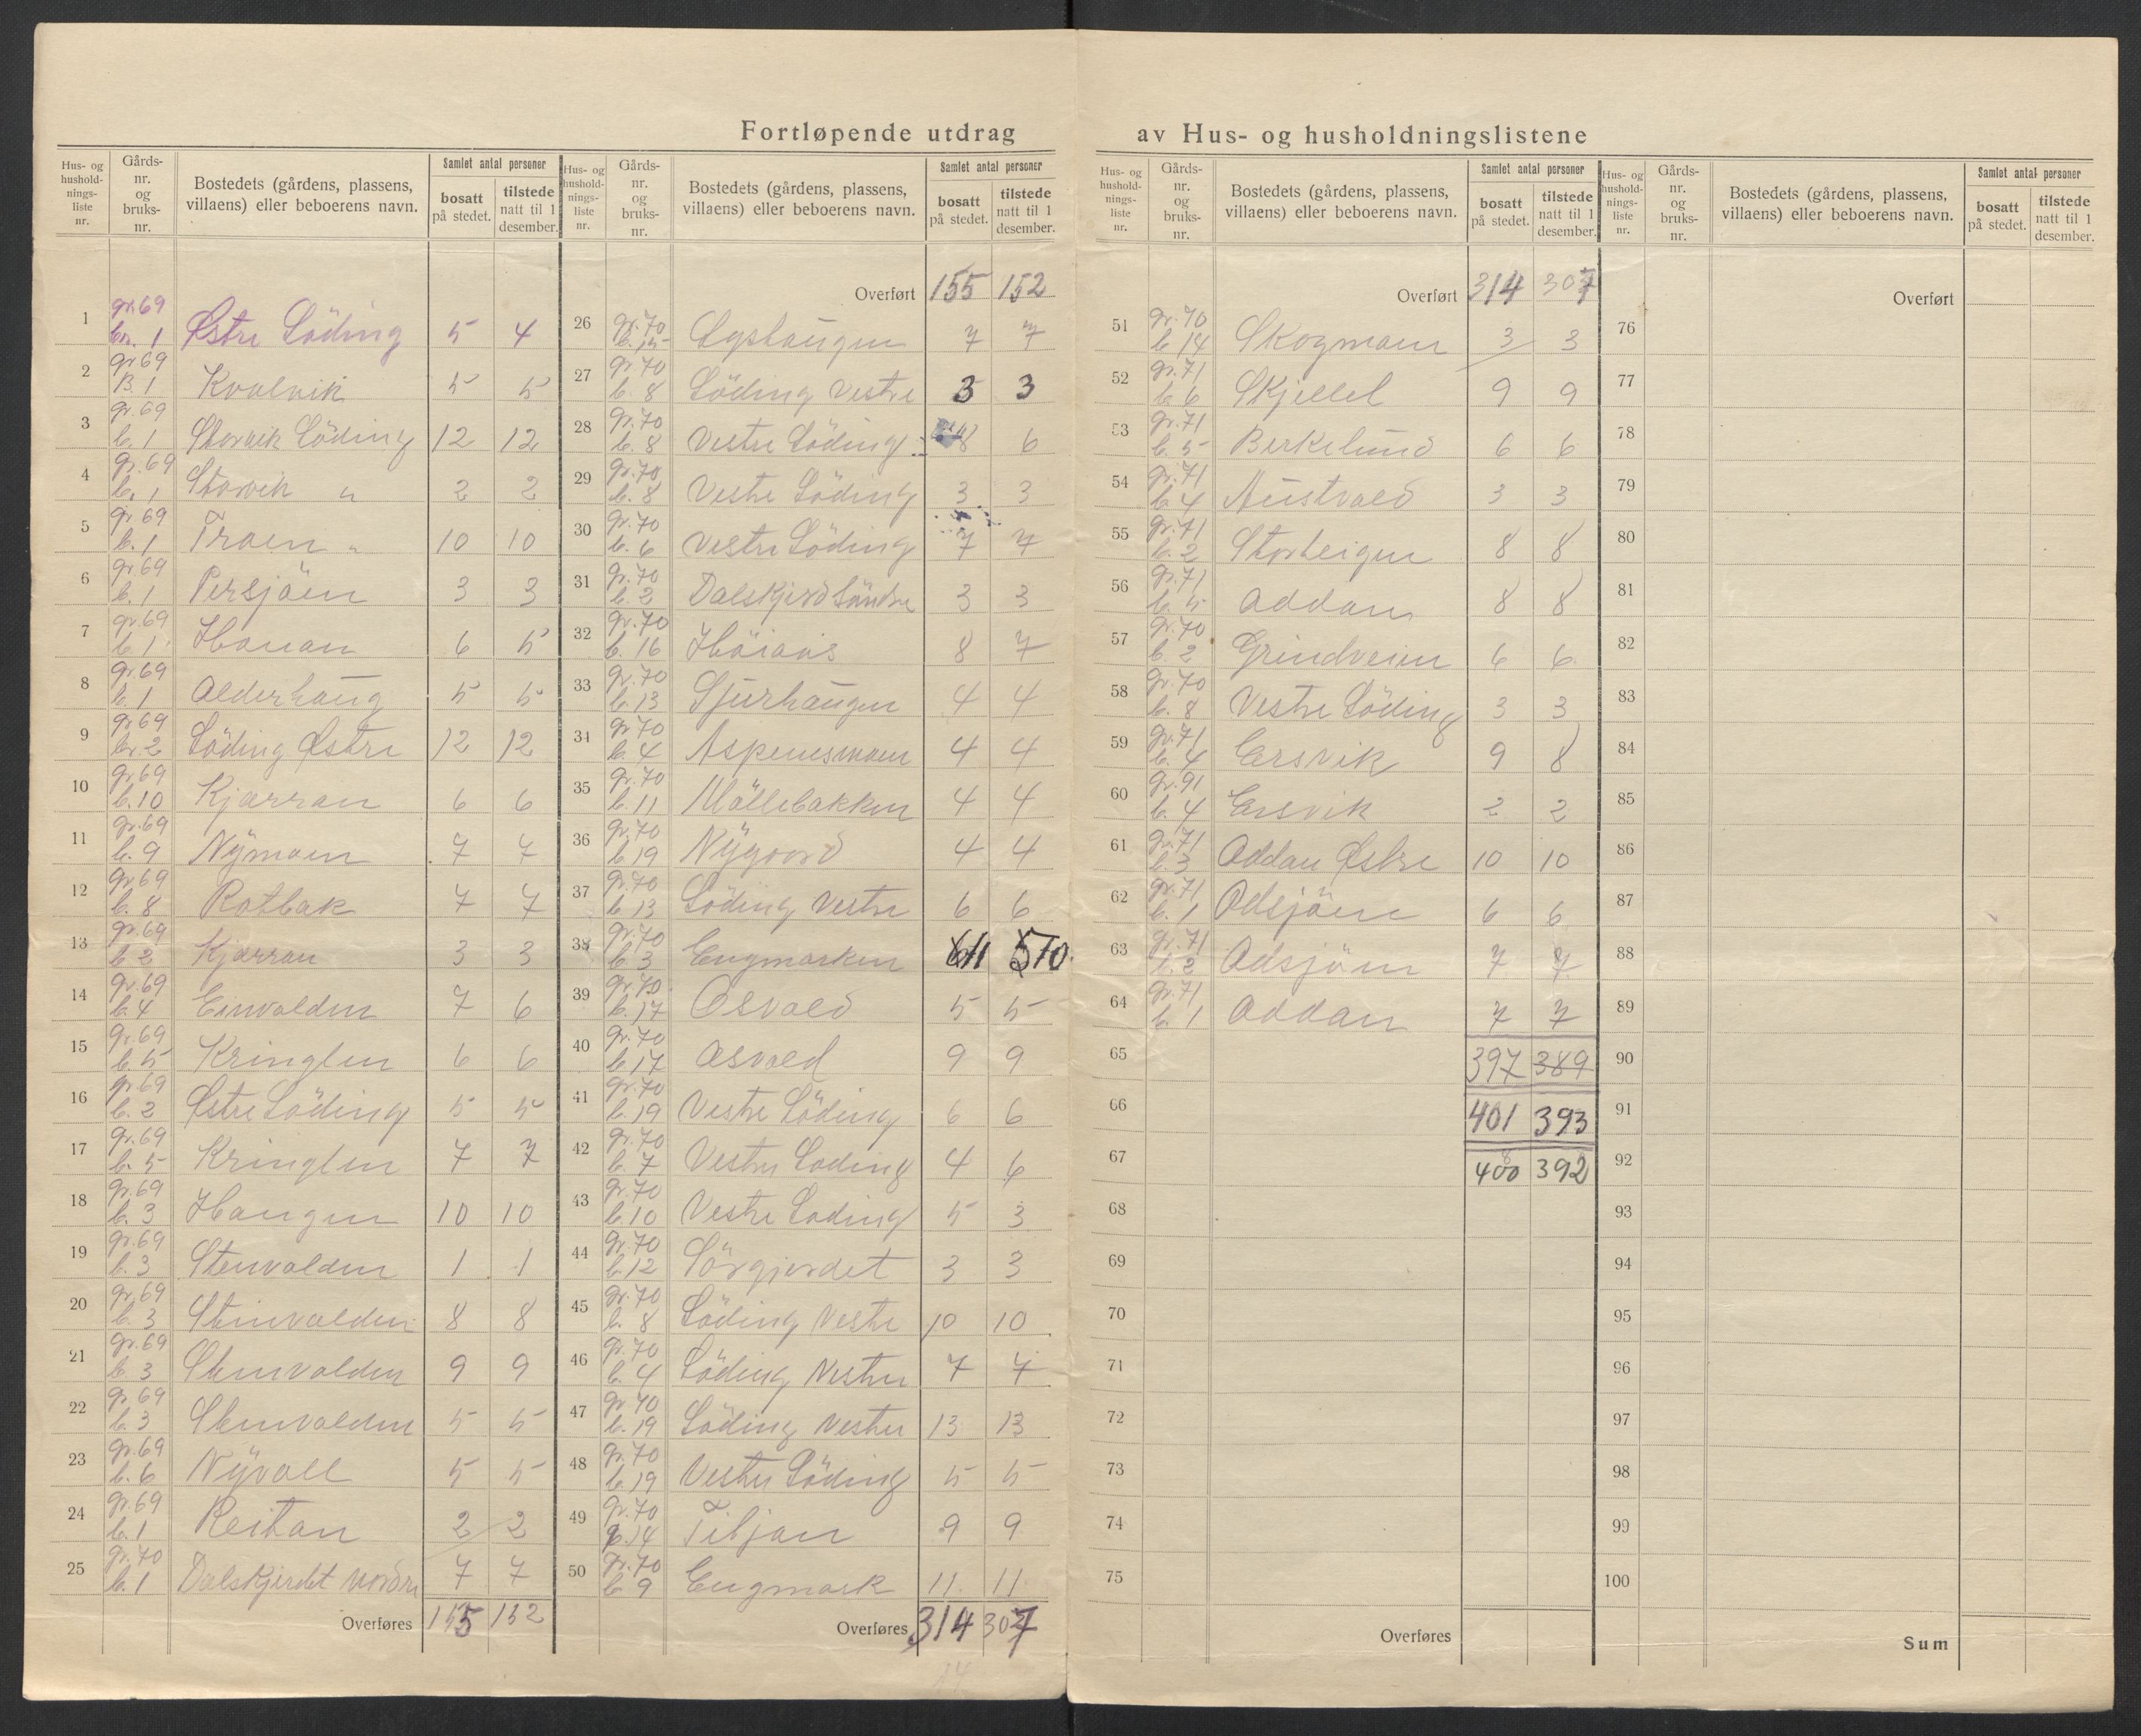 Fortløpende utdrag av Hus- og husholdningslistene
Hus- og husholdnings- liste nr. | Gårds- nr. og bruks- nr. | Bostedets (gårdens, plassens, villaens) eller beboerens navn. | Samlet antal personer bosatt på stedet. | tilstede natt til 1 desember.
1 gr. 69 br. 1 Østre Löding 5 4
2 gr 69 B. 1 Kvalvik 5 5
3 gr. 69 b. 1 Storvik Löding 12 12
4 gr. 69 b. 1 Storvik " 2 2
5 gr 69 b. 1 Traen " 10 10
6 gr. 69 b. 1 Persjöen 3 3
7 gr 69 b. 1 Haugan 6 5
8 gr. 69 b. 1 Alderhaug 5 5
9 gr 69 br. 2 Löding Østre 12 12
10 gr. 69 b. 10 Kjærran 6 6
11 gr. 69 b. 9 Nymoen 7 7
12 gr 69 b. 8 Rotbak 7 7
13 gr. 69 b 2 Kjærran 3 3
14 gr. 69 b. 4 Einvolden 7 6
15 gr. 69 b. 5 Kringlen 6 6
16 gr. 69 b. 2 Østre Löding 5 5
17 gr. 69 b. 5 Kringlen 7 7
18 gr. 69 b. 3 Haugen 10 10
19 gr. 69 b. 3 Stenvolden 1 1
20 gr. 69 b. 3 Stenvolden 8 8
21 gr. 69 b. 3 Stenvolden 9 9
22 gr 69 b. 3 Stenvolden 5 5
23 gr. 69 b. 6 Nyvoll 5 5
24 gr. 69 b. 1 Reitan 2 2
25 gr. 70 b. 1 Dalskjerdet Nordre 7 7
Overføres 155 152
Hus- og husholdnings- liste nr. | Gårds- nr. og bruks- nr. | Bostedets (gårdens, plassens, villaens) eller beboerens navn. | Samlet antal personer bosatt på stedet. | tilstede natt til 1 desember.
Overført 155 152
26 gr. 70 b. 15 Lyshaugen 7 7
27 gr. 70 b. 8 Löding Vestre 3 3
28 gr. 70 b. 8 Vestre Löding 8 6
29 gr. 70 b. 8 Vestre Löding 3 3
30 gr. 70 b. 6 Vestre Löding 7 7
31 gr. 70 b. 2 Dalskjerd Söndre 3 3
32 gr. 70 b. 16 8 7
33 gr. 70 b. 13 Sjurhaugen 4 4
34 gr 70 b. 4 Aspenesmoen 4 4
35 gr. 70 b. 11 Möllebakken 4 4
36 gr. 70 b 19 Nygoord 4 4
37 gr. 70 b 13 Löding Vestre 6 6
38 gr. 70 b 3 Engmarken 11 10.
39 gr. 70 b. 17 Osvold 5 5
40 gr. 70 b. 17 Osvold 9 9
41 gr. 70 b. 19 Vestre Löding 6 6
42 gr. 70 b. 7 Vestre Löding 4 6
43 gr. 70 b. 10 Vestre Löding 5 3
44 gr. 70 b. 12 Sörgjerdet 3 3
45 gr. 70 b. 8 Löding Vestre 10 10
46 gr. 70 b. 4 Löding Vestre 7 7
47 gr 70 b. 19 Löding Vestre 13 13
48 gr. 70 b. 19 Vestre Löding 5 5
49 gr. 70 b. 14 Tiljan 9 9
50 gr. 70 b 9 Engmark 11 11
Overføres 314 307
Hus- og hushold- nings- liste nr. | Gårds- nr. og bruks- nr. | Bostedets (gårdens, plassens, villaens) eller beboerens navn. | Samlet antal personer bosatt på stedet. | tilstede natt til 1 desember.
Overført 314 307
51 gr. 70 b 14 Skogmoen 3 3
52 gr. 71 b. 6 Skjellel 9 9
53 gr. 71 b. 5 Berkelund 6 6
54 gr. 71 b. 4 Austvold 3 3
55 gr. 71 b. 2 Storteigen 8 8
56 gr. 71 b. 5 Oddan 8 8
57 gr. 70 b. 2 Grindveien 6 6
58 gr. 70 b. 8 Vestre Löding 3 3
59 gr. 71 b. 4 Ersvik 9 8
60 gr. 91 b. 4 Ersvik 2 2
61 gr. 71 b. 3 Oddan Østre 10 10
62 gr. 71 b. 1 Odsjöen 6 6
63 gr. 71 b. 2 Odsjöen 7 7
64 gr. 71 b. 1 Oddan 7 7
65 397 389
66 401 393
67 400 392
68
69
70
71
72
73
74
75
Overføres
Hus- og husholdnings- liste nr. | Gårds- nr. og bruks- nr. | Bostedets (gårdens, plassens, villaens) eller beboerens navn. | Samlet antal personer bosatt på stedet. | tilstede natt til 1 desember.
Overført
76
77
78
79
80
81
82
83
84
85
86
87
88
89
90
91
92
93
94
95
96
97
98
99
100
Sum